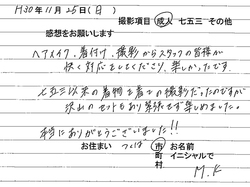 H30年11月25日(日)
撮影項目 成人 七五三 その他
感想をお願いします
ヘアメイク、着付け、撮影からスタッフの皆様が
快く対応をしてくださり、楽しかったです。
七五三以来の着物を着ての撮影だったのですが
沢山のセットもあり緊張せず楽しめました。
本当にありがとうございました!!
お住まい つくば 市町村 お名前 イニシャルで
M.K